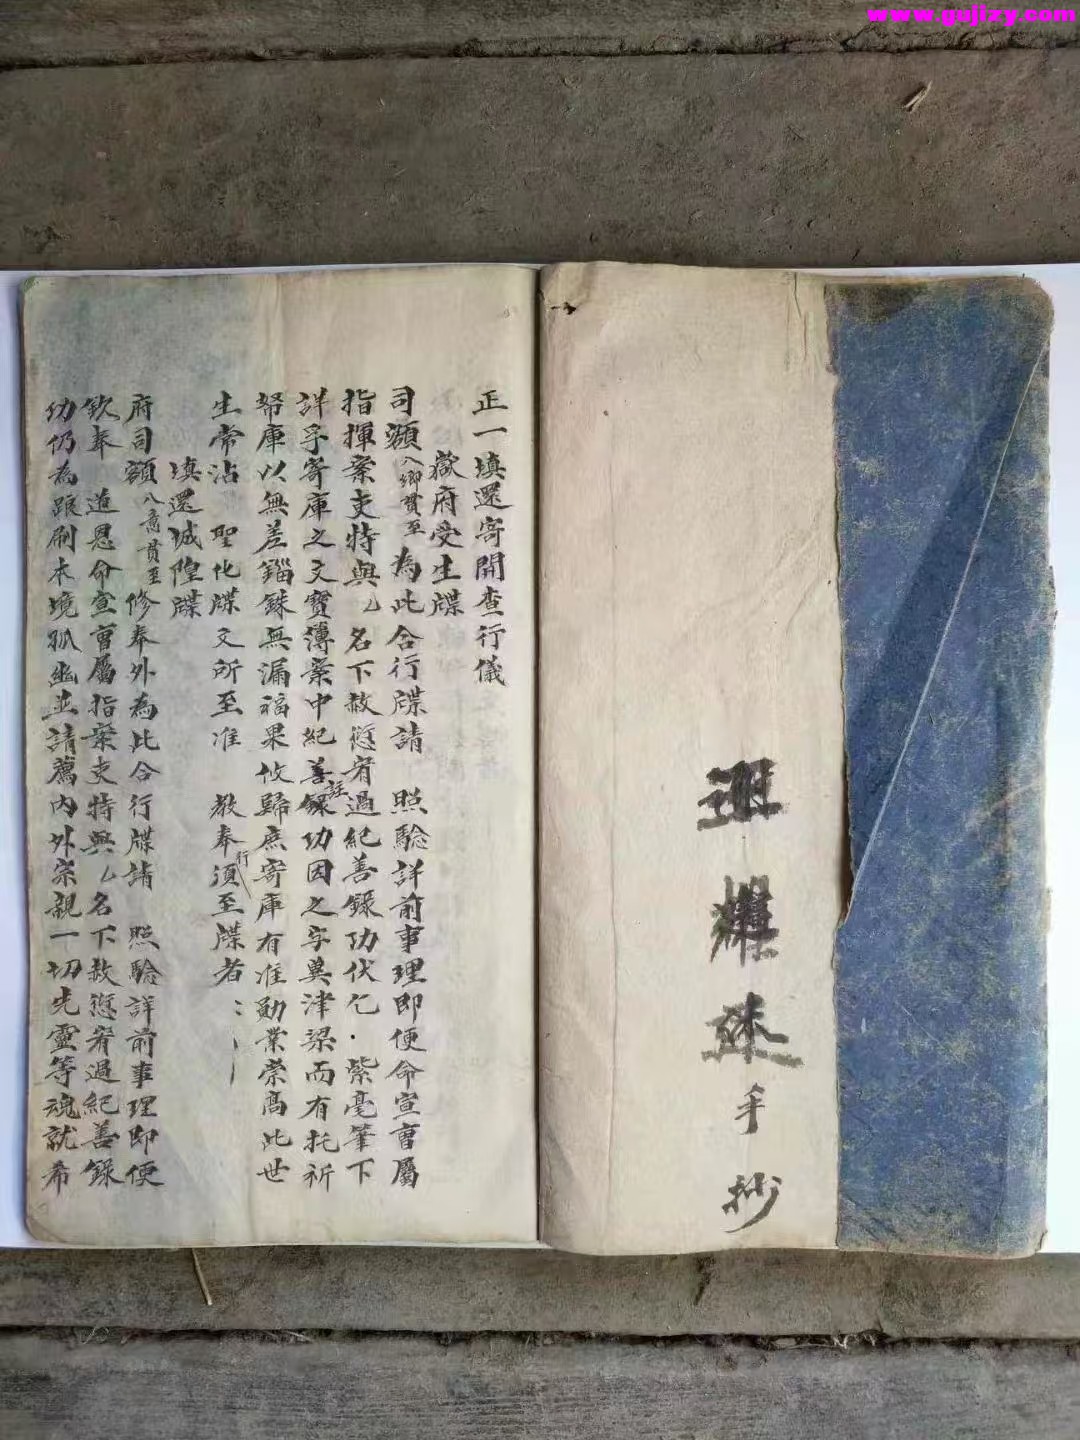 www.gujizy.com
手抄
正一填還寄開查行儀
嶽府受生牒
司額入鄉貫至為此合行牒請 照驗詳前事理即便命宣曹屬
指揮案吏特與厶名下赦愆宥過紀善錄功伏乞·紫毫筆下
詳孚寄庫之文寶簿案中紀善錄註功因之字奠津梁而有托祈
帑庫以無差錙銖無漏福果攸歸庶寄庫有准勛業崇高此世
生常沾 聖化牒文所至准 教奉行須至牒者
填還城隍牒
府司額入意貫至修奉外為此合行牒請 照驗詳前事理即便
欽奉 道恩命宣曹屬指案吏特與厶名下赦愆宥過紀善錄
功仍為跟刷本境孤幽並請薦內外宗親一切先靈等魂就希